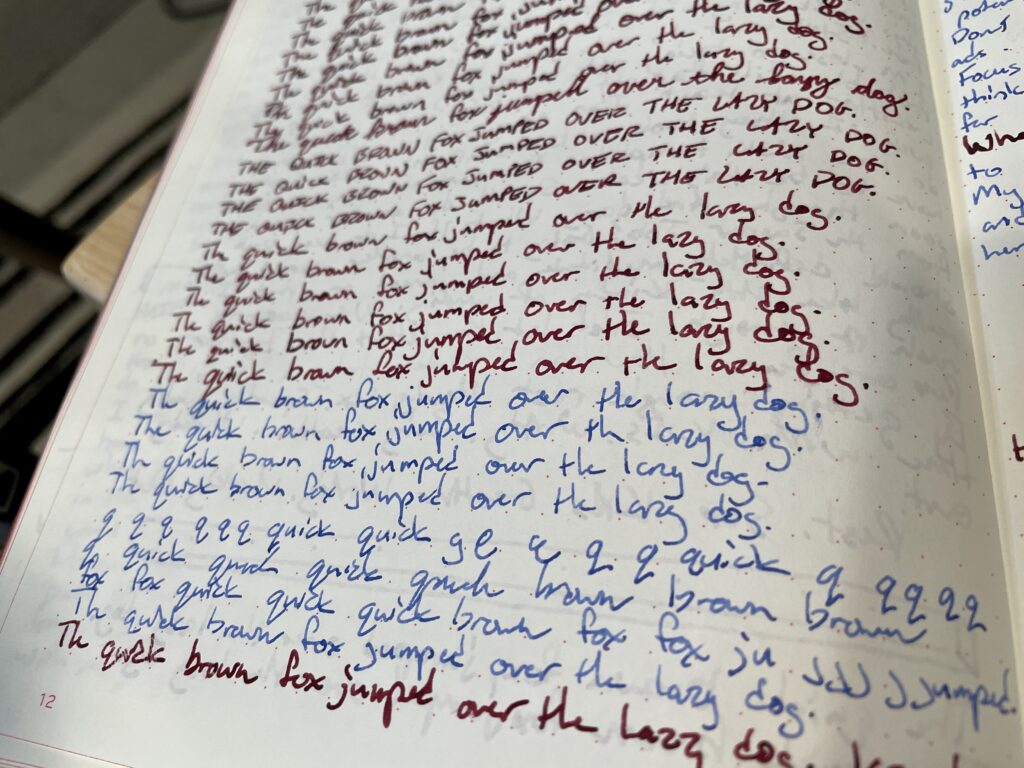 The quick brown
The quick brown fox jum
The quick brown fox jumped over
The quick brown fox jumped over the lazy dog.
The quick brown fox jumped over the lazy dog.
The quick brown fox jumped over the lazy dog.
The quick brown fox jumped over the lazy dog.
THE QUICK BROWN FOX JUMPED OVER THE LAZY DOG.
THE QUICK BROWN FOX JUMPED OVER THE LAZY DOG.
THE QUICK BROWN FOX JUMPED OVER THE LAZY DOG.
THE QUICK BROWN FOX JUMPED OVER THE LAZY DOG.
The quick brown fox jumped over the lazy dog.
The quick brown fox jumped over the lazy dog.
The quick brown fox jumped over the lazy dog.
The quick brown fox jumped over the lazy dog.
The quick brown fox jumped over the lazy dog.
The quick brown fox jumped over the lazy dog.
The quick brown fox jumped over the lazy dog.
The quick brown fox jumped over th lazy dog.
The quick brown fox jumped over the lazy dog.
The quick brown fox jumped over the lazy dog.
q q q q q q quick quick q q q q q quick q q q q q
q quick quick quick quick brown brown brown
fox fox quick quick quick brown fox fox ju J J J J J jumped.
The quick brown fox jumped over the lazy dog.
The quick brown fox jumped over the lazy dog.
12
Dont
ads
Focus
think
for
to
My
and